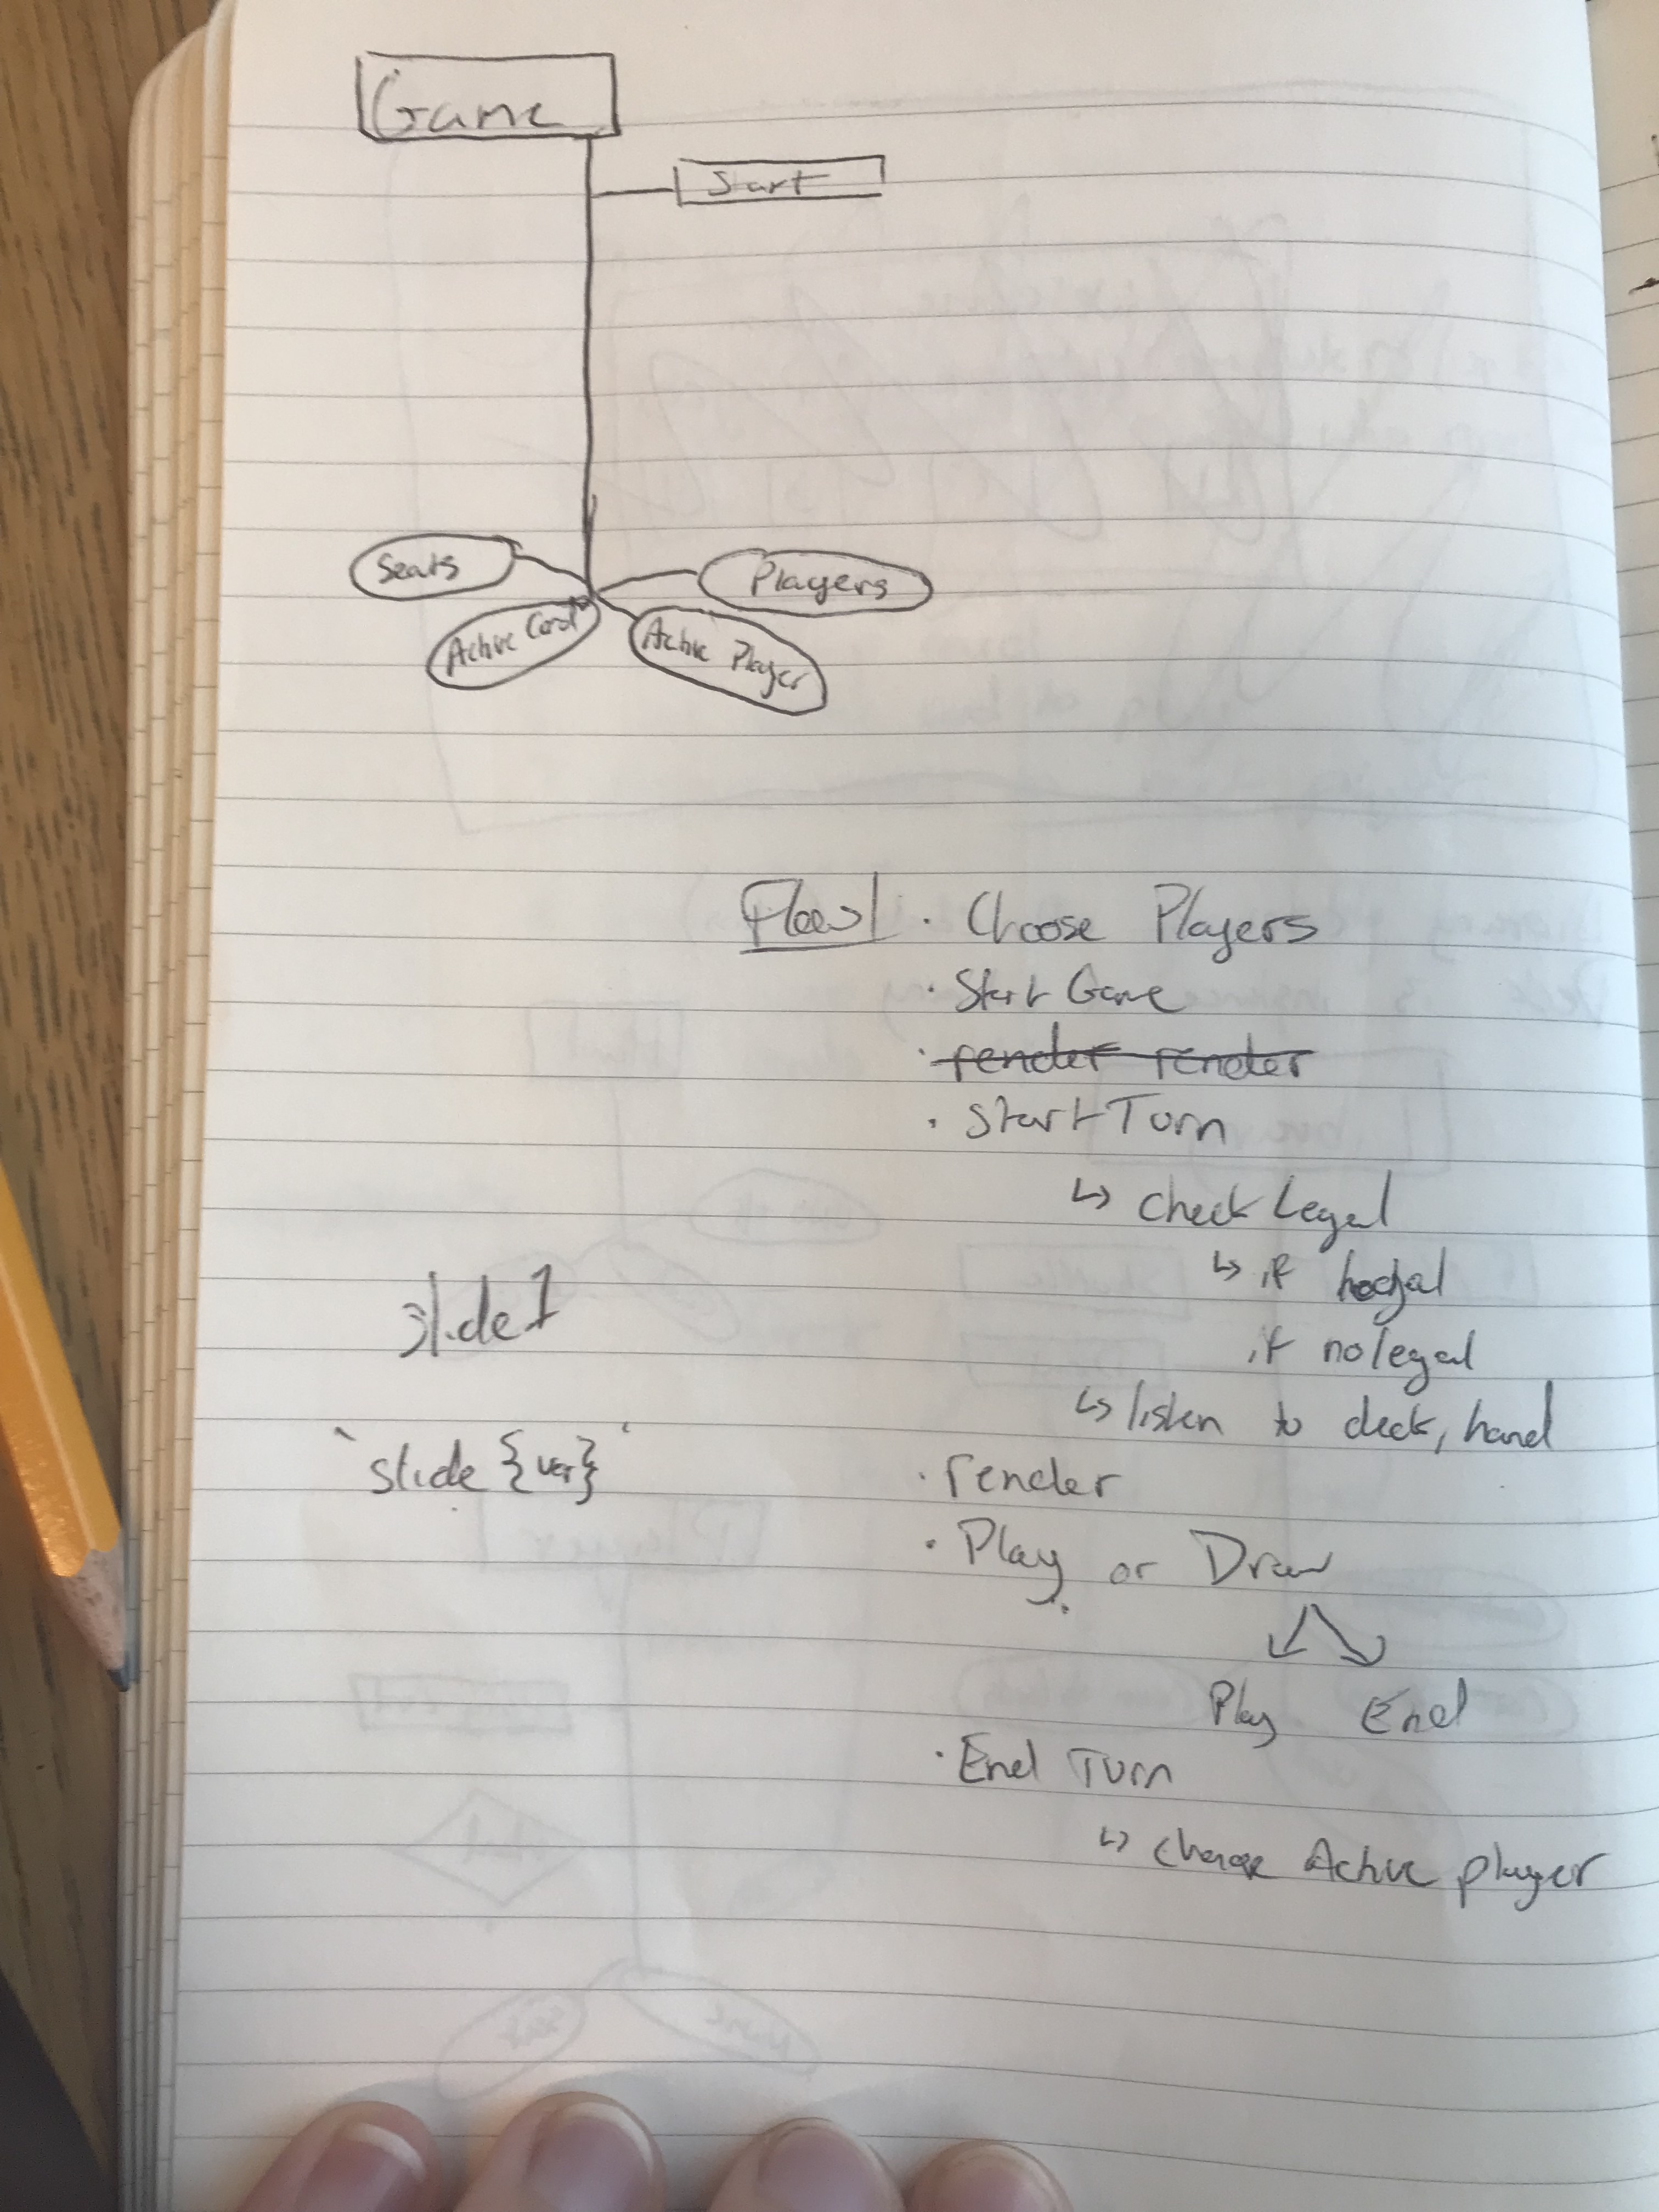 Game
Start
Seats
Players
Active Card
Active Player
Flow
· Choose Players
· Start Game
· render render
· Start Turn
↳ check Legal
↳ if
if no legal
↳ listen to deck, hand
slide 1
`slide {var}`
· render
· Play or Draw
Play End
· End Turn
↳ change Active player